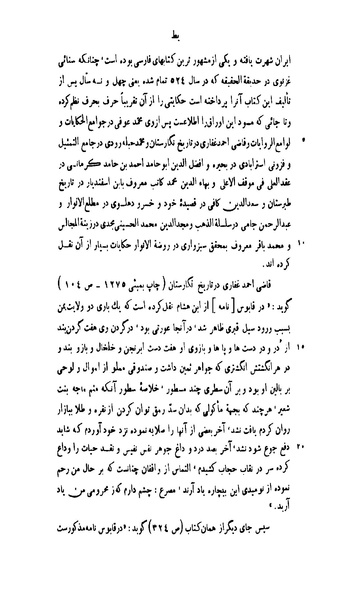 یط
ایران شهرت یافته و یکی از مشهور ترین کتابهای فارسی بوده است؛ چنانکه سنائی
غزنوی در حدیقة الحقیقه که در سال ۵۲۴ تمام شده یعنی چهل و نه سال پس از
تألیف این کتاب آنرا پرداخته است حکایتی را از آن تقریباً حرف بحرف نظم کرده
و تا جائی که مسود این اوراق را اطلاعست پس از وی محمد عوفی در جوامع الحکایات و
لوامع الروایات و قاضی احمد غفاری در تاریخ نگارستان و محمد حبله رودی در جامع التمثیل ۵
و فزونی استرابادی در بحیره و افضل الدین ابو حامد احمد بن حامد کرمانی در
عقد العلی فی موقف الاعلی و بهاء الدین محمد کاتب معروف بابن اسفندیار در تاریخ
طبرستان و سعد الدین کافی در قصیدهٔ خود و خسرو دهلوی در مطلع الانوار و
عبد الرحمن جامی در سلسلة الذهب و مجد الدین محمد الحسینی مجدی در زینة المجالس
و محمد باقر معروف بمحقق سبزواری در روضة الانوار حکایات بسیار از آن نقل ۱۰
کرده اند.
قاضی احمد غفاری در تاریخ نگارستان ( چاپ بمبئی ۱۲۷۵ ـ ص ۱۰۴ )
گوید: « در قابوس [ نامه ] از ابن هشام نقل کرده است که یك باری دو ولایت یمن
بسبب ورود سیل قبری ظاهر شد؛ در آنجا عورتی بود؛ در گردن وی هفت گردن بند
از دُر و در دست ها و پا ها و بازوی او هفت دست ابرنجن و خلخال و بازو بند و ۱۵
در هر انگشتش انگشتری که جواهر ثمین داشت و صندوقی مملو از اموال و لوحی
بر بالین او بود و بر آن سطری چند مسطور؛ خلاصهٔ سطور آنکه منم بنت
شمیر؛ هر چند که بجههٔ مأکولی که بدان سدّ رمق توان کردن از نقره و طلا ببازار
روان کردم یافت نشد؛ آخر بعضی از آنها را صلایه نموده نزد خود آوردم که شاید
دفع جوع شود نشد؛ آخر بعد درد و داغ جوهر نفس نفیس و نقد حیات را وداع ۲۰
کرده سر در نقاب حجاب کشیدم؛ التماس از واقفان چنانست که بر حال من رحم
نموده از نومیدی این بیچاره یاد آرند؛ مصرع : چشم دارم که ز محرومی من یاد
آرید. »
سپس جای دیگر از همان کتاب (ص ۳۲۴) گوید: « در قابوس نامه مذکورست